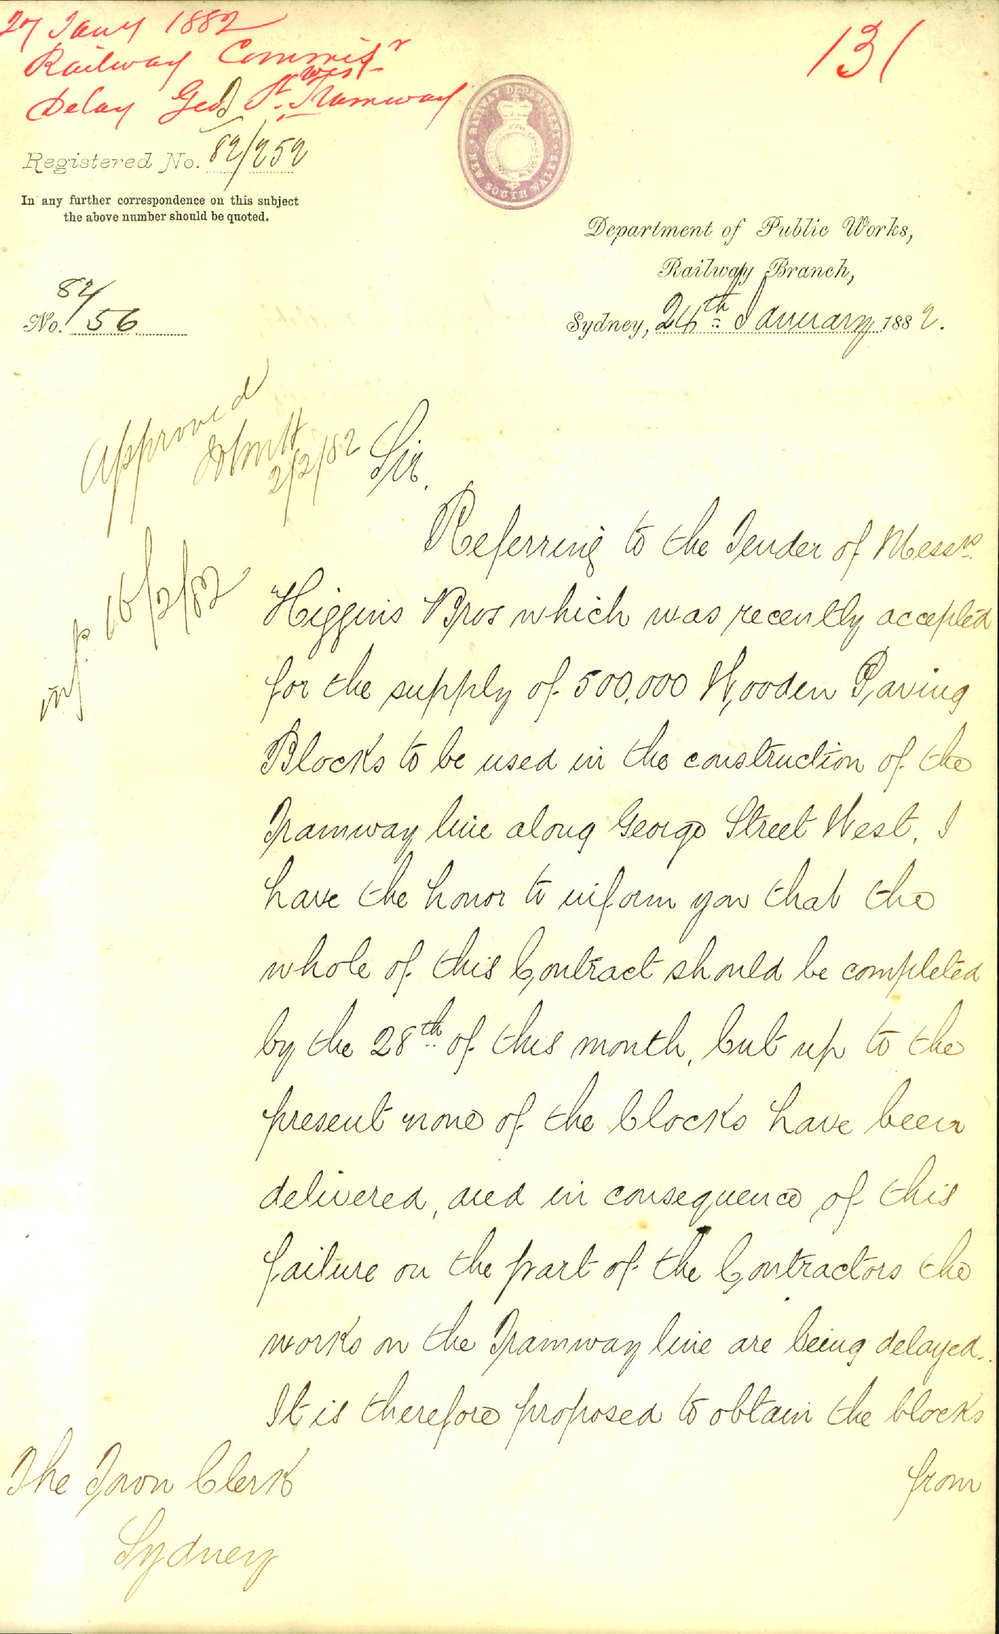 27 Jany 1882
131
Railway Commissr
Delay Geo St West Tramway
RAILWAY DEPARTMENT
NEW SOUTH WALES
Registered No. 82/252
In any further correspondence on this subject
the above number should be quoted.
Department of Public Works,
Railway Branch,
82/
No. 56
Sydney, 24th January 1882.
Approved
2/2/82
Sir,
16/2/82
Referring to the Tender of Messrs
Higgins Bros which was recently accepted
for the supply of 500,000 Wooden Paving
Blocks to be used in the construction of the
Tramway line along George Street West, I
have the honor to inform you that the
whole of this Contract should be completed
by the 28th of this month, but up to the
present none of the blocks have been
delivered, and in consequence of this
failure on the part of the Contractors the
works on the Tramway line are being delayed.
It is therefore proposed to obtain the blocks
from
The Town Clerk
Sydney